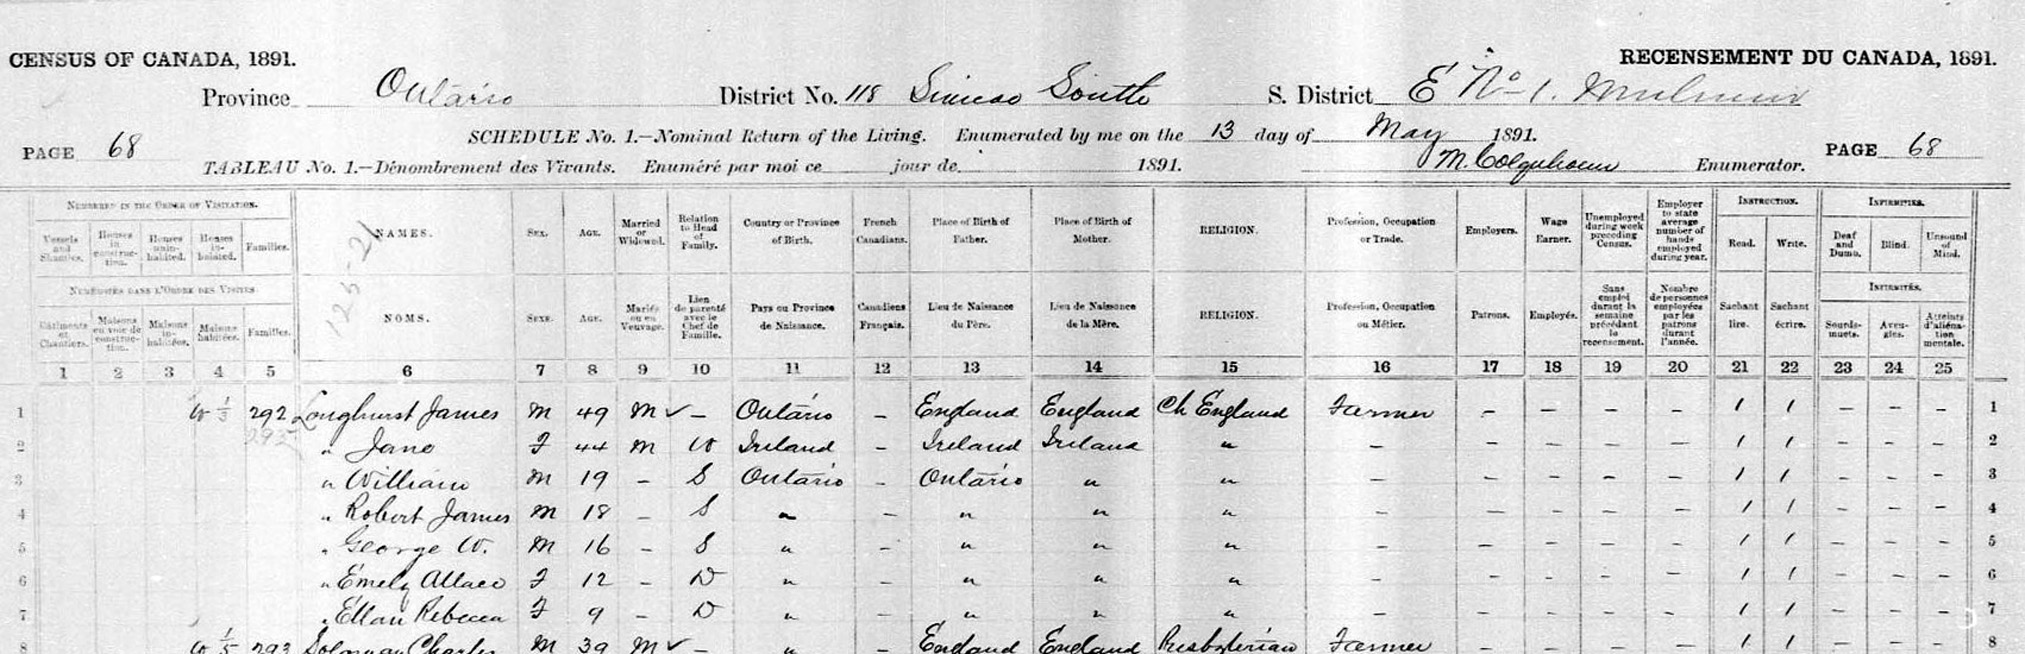 CENSUS OF CANADA, 1891. RECENSEMENT DU CANADA, 1891.
Province Ontario District No. 118 Simcoe South S. District E No 1. Mulmur
SCHEDULE No. 1.—Nominal Return of the Living. Enumerated by me on the 13 day of May 1891.
PAGE 68 PAGE 68
TABLEAU No. 1.—Dénombrement des Vivants. Enuméré par moi ce jour de 1891. M. Colquhoun Enumerator.
NUMBERED IN THE ORDER OF VISITATION.
Vessels and Shanties. Houses in construction. Houses uninhabited. Houses inhabited. Families.
NAMES. SEX. AGE. Married or Widowed. Relation to Head of Family. Country or Province of Birth. French Canadians. Place of Birth of Father. Place of Birth of Mother. RELIGION. Profession, Occupation or Trade. Employers. Wage Earner. Unemployed during week preceding Census. Employer to state average number of hands employed during year. INSTRUCTION. Read. Write. INFIRMITIES. Deaf and Dumb. Blind. Unsound of Mind.
125-21
NUMÉROTÉS DANS L'ORDRE DES VISITES
Bâtiments et Chantiers. Maisons en voie de construction. Maisons inhabitées. Maisons habitées. Familles.
NOMS. SEXE. AGE. Mariés ou en Veuvage. Lien de parenté avec le Chef de Famille. Pays ou Province de Naissance. Canadiens Français. Lieu de Naissance du Père. Lieu de Naissance de la Mère. RELIGION. Profession, Occupation ou Métier. Patrons. Employés. Sans emploi durant la semaine précédant le recensement. Nombre de personnes employées par les patrons durant l'année. Sachant lire. Sachant écrire. INFIRMITÉS. Sourds-muets. Aveugles. Atteints d'aliénation mentale.
1 2 3 4 5 6 7 8 9 10 11 12 13 14 15 16 17 18 19 20 21 22 23 24 25
1 W 1/3 292 Longhurst James M 49 M ✓ – Ontario – England England Ch England Farmer – – – – 1 1 – – – 1
295
2 " Jane F 44 M W Ireland – Ireland Ireland " – – – – – 1 1 – – – 2
3 " William M 19 – S Ontario – Ontario " " – – – – – 1 1 – – – 3
4 " Robert James M 18 – S " – " " " – – – – – 1 1 – – – 4
5 " George W. M 16 – S " – " " " – – – – – 1 1 – – – 5
6 " Emely Allace F 12 – D " – " " " – – – – – 1 1 – – – 6
7 " Ellan Rebecca F 9 – D " – " " " – – – – – 1 1 – – – 7
8 W 1/5 293 Charles M 39 M ✓ – " – England England Presbyterian Farmer – – – – 1 1 – – – 8